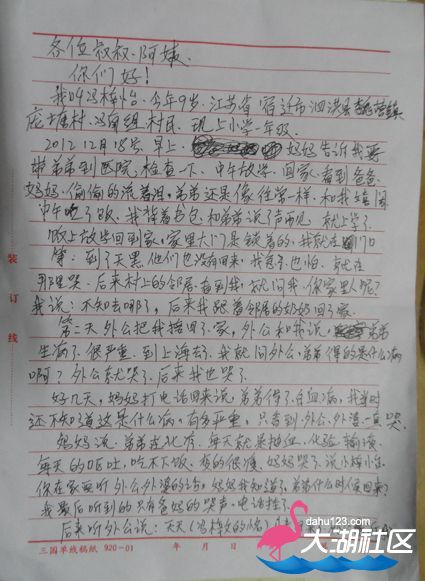 各位叔叔.阿姨.
你们好!
我叫冯梓怡.今年9岁.江苏省宿迁市泗洪县魏营镇
庞塘村.冯圩组村民.现上小学一年级.
2012.12月18号.早上. 妈妈告诉我要
带弟弟到医院.检查一下.中午放学.回家.看到爸爸
妈妈.偷偷的流着泪.弟弟还是像往常一样.和我嬉闹
中午吃了饭.我背着书包.和弟弟说了声再见.就上学了
晚上放学回到家.家里大门是锁着的.我就在门口
等.到了天黑.他们也没有回来.我急了也怕.就在
那里哭.后来村上的邻居.看到我.就问我.你家里人呢?
我说:不知去哪了.后来我跟着邻居的奶奶回了家.
第二天外公把我接回了家.外公和我说. 弟弟
生病了.很严重.到上海去了.我就问外公.弟弟得的是什么病
啊?外公就哭了.后来我也哭了.
好几天.妈妈打电话回来说.弟弟得了白血病.我当时
还不知道这是什么病.有多严重.只看到外公.外婆一直哭.
妈妈说.弟弟在化疗.每天就是抽血.化验.输液.
每天的呕吐.吃不下饭.瘦的很多.妈妈哭了.说小梓怡.
你在家要听外公外婆的话.妈妈我知道了.弟弟什么时候回来?
我最后听到的只有妈妈的哭声.电话挂了.
后来听外公说:天天
装订线
三国单线稿纸 920-01 年 月 日
dahu123.com
大湖社区